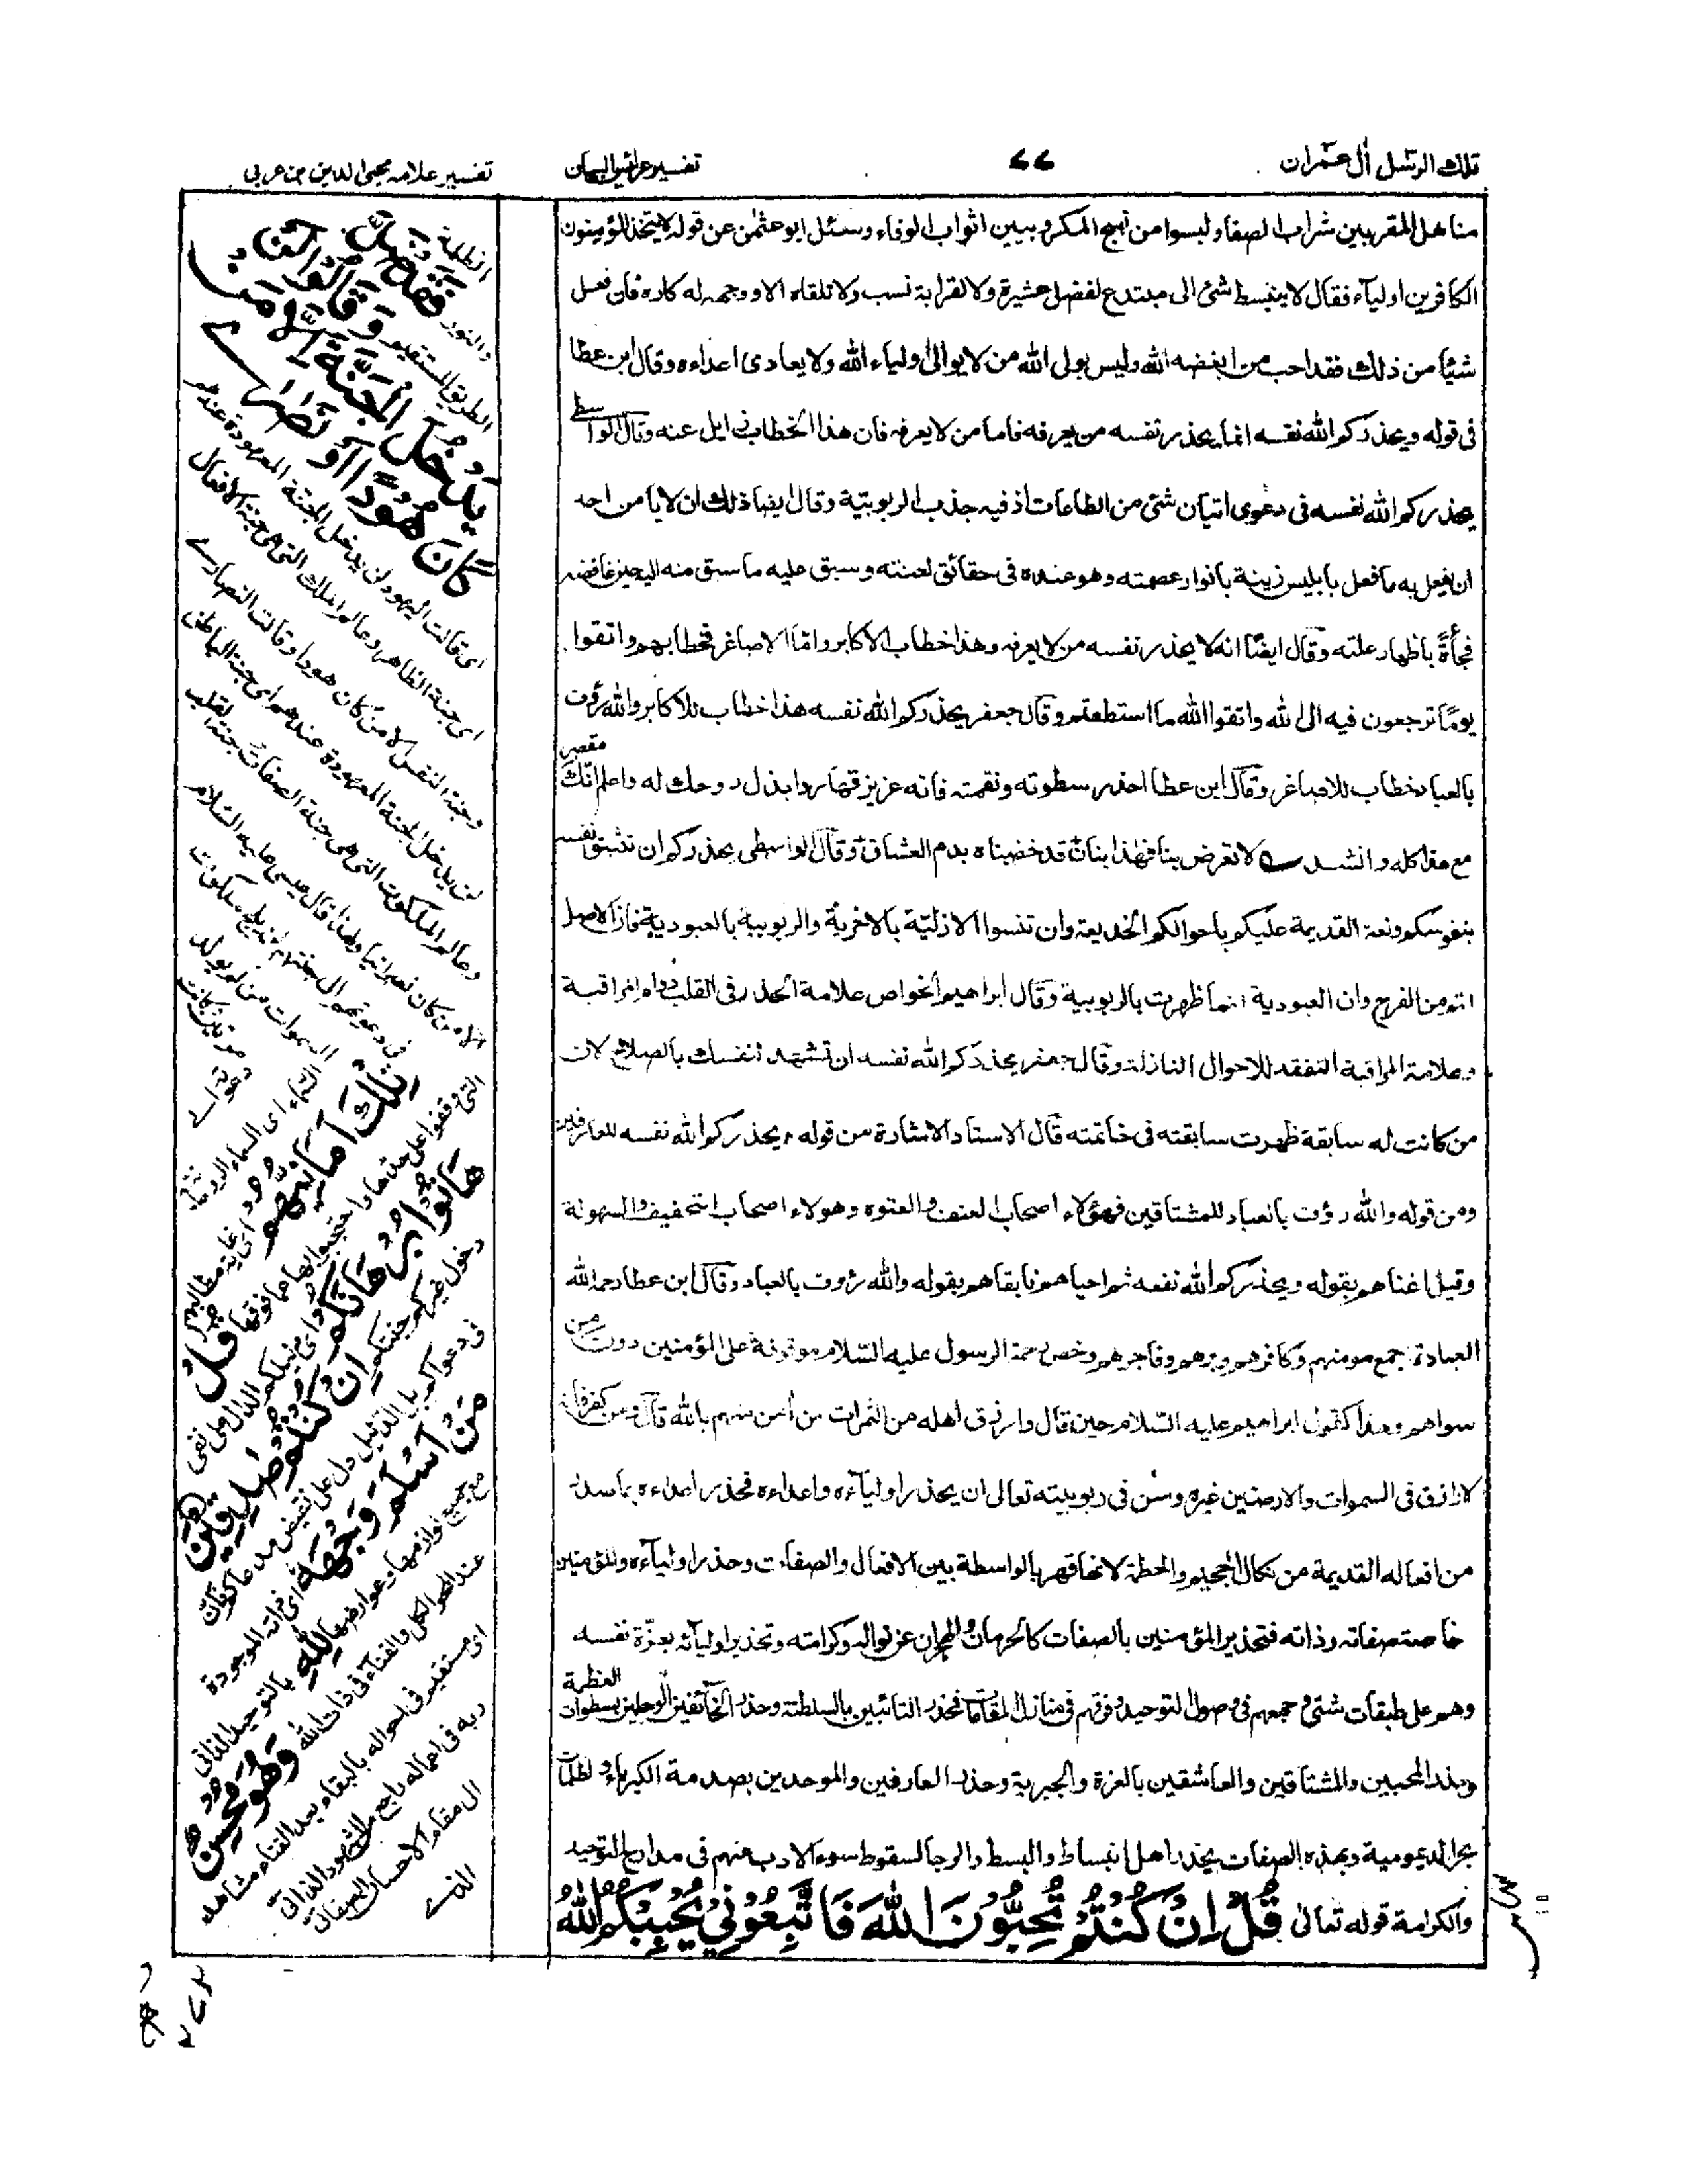 تلك الرسل اٰل عمران
٧٧
تفسير عرائس البيان
تفسير علامه محيى الدين بن عربى
مناهل المقربين شراب الصفا ولبسوا من نهج المكروبيين اثواب الوفاء وسئل ابو عثمٰن عن قوله لا يتخذ المؤمنون
الكافرين اولياء فقال لا ينبسط شئ الى مبتدع لفضل عشيرة ولا لقرابة نسب ولا تلقاه الا ووجهه له كاره فان فعل
شيئا من ذلك فقد احب من ابغضه الله وليس بولى الله من لا يوالى اولياء الله ولا يعادى اعداءه وقال ابن عطا
فى قوله ويحذركم الله نفسه انما يحذر نفسه من يعرفه فاما من لا يعرفه فان هذا الخطاب زايل عنه وقال الواسطى
يحذركم الله نفسه فى دعوى اتيان شئ من الطاعات اذ فيه جذب الربوبية وقال ايضا ذلك ان لا يامن احد
ان يفعل به ما فعل بابليس زينة بانوار عصمته وهو عنده فى حقائق لعنته وسبق عليه ما سبق منه اليه
فجأةً باظهار علته وقال ايضًا انه لا يحذر نفسه من لا يعرفه وهذا خطاب الاكابر واما الاصاغر فخطابهم واتقوا
يومًا ترجعون فيه الى الله واتقوا الله ما استطعتم وقال جعفر يحذركم الله نفسه هذا خطاب للاكابر والله رؤف
بالعباد خطاب للاصاغر وقال ابن عطا احذر سطوته ونقمته فانه عزيز قهار وابذل روحك له واعلم انك مقصر
مع هذا كله وانشد لا تعرض بنا فهذا بنان قد خضبناه بدم العشاق وقال الواسطى يحذركم ان نفسه
بنفوسكم ونعته القديمة عليكم باحوالكم الخديعة وان تنسوا الازليّة بالاخرية والربوبية بالعبودية فان الاصل
اتم من الفرع وان العبودية انما ظهرت بالربوبية وقال ابراهيم الخواص علامة الحذر فى القلب دوام المراقبة
وعلامة المراقبة التفقد للاحوال النازلة وقال جعفر يحذركم الله نفسه ان تشهد لنفسك بالصلاح لان
من كانت له سابقة ظهرت سابقته فى خاتمته قال الاستاد الاشارة من قوله ويحذركم الله نفسه للعارفين
ومن قوله والله رؤف بالعباد للمشتاقين فهؤلاء اصحاب العنف والعتوه وهولاء اصحاب التخفيف والسهولة
وقيل افناهم بقوله ويحذركم الله نفسه ثم احياهم وابقاهم بقوله والله رؤف بالعباد وقال ابن عطا رحم الله
العبادة جمع مومنهم وكافرهم وبرهم وفاجرهم وخص رحمة الرسول عليه السلام موقوفة على المؤمنين دون من
سواهم وهذا كقول ابراهيم عليه السلام حين قال وارزق اهله من الثمرات من اٰمن منهم بالله قال ومن كفر فانه
لا رازق فى السموات والارضين غيره وسن فى ربوبيته تعالى ان يحذر اولياءه واعداءه فحذر اعداءه بما سدل
من افعاله القديمة من نكال الجحيم والحطمة لانها قهر بالواسطة بين الافعال والصفات وحذر اولياءه والمؤمنين
خاصة صفاته وذاته فتحذير المؤمنين بالصفات كالحرمان والهجران عن نواله وكرامته وتحذير اوليائه بعزة نفسه
وهم على طبقات شتى جمعهم فى اصول التوحيد وفرقهم فى منازل المقامات فحذر التائبين بالسلطنة وحذر الخائفين الوجلين بسطوات العظمة
وحذر المحبين والمشتاقين والعاشقين بالعزة والجبرية وحذر العارفين والموحدين بصدمة الكبرياء ولطمات
بحر الديمومية وبهذه الصفات يحذر اهل انبساط والبسط والرجا لسقوط سوء الادب منهم فى مدارج التوحيد
والكرامة قوله تعالى قُلْ اِنْ كُنْتُمْ تُحِبُّوْنَ اللهَ فَاتَّبِعُوْنِيْ يُحْبِبْكُمُ اللهُ
الظلمة
والنور
الطريق المستقيم وَقَالُوْا لَنْ
يَدْخُلَ الْجَنَّةَ اِلَّا مَنْ
كَانَ هُوْدًا اَوْ نَصٰرٰى
اى قالت اليهود لن يدخل الجنة المعهودة عندهم
اى جنة الظاهر وعالم الملك التى هى جنة الافعال
وجنة النفس الا من كان هودا وقالت النصارى
لن يدخل الجنة المعهودة عندهم اى جنة الباطن
وعالم الملكوت التى هى جنة الصفات وجنة القلب
الا من كان نصرانيا ولهذا قال عيسى عليه السلام
لن يلج ملكوت
السموات من لم يولد
مرتين
السماء اى السماء الروحانية
تِلْكَ اَمَانِيُّهُمْ اى غاية مطالبهم
التى وقفوا على حدها واحتجبوا بها عما فوقها قُلْ
هَاتُوْا بُرْهَانَكُمْ
دخول غيركم جنتكم اِنْ كُنْتُمْ صٰدِقِيْنَ
فى دعواكم بل الدليل دل على نقيض مدعاكم فان
مَنْ اَسْلَمَ وَجْهَهٗ اى ذاته الموجودة
مع جميع لوازمها وعوارضها لِلّٰهِ بالتوحيد الذاتى
عند المحو الكلى والفناء فى ذات الله وَهُوَ مُحْسِنٌ
اى مستقيم فى احواله بالبقاء بعد الفناء مشاهد
ربه فى اعماله راجع من الشهود الذاتى
الى مقام الاحسان الصفاتى
الذى